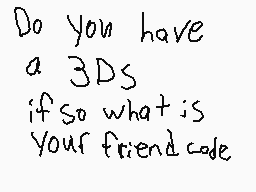 Do you have
a 3DS
if so what is
your friend code